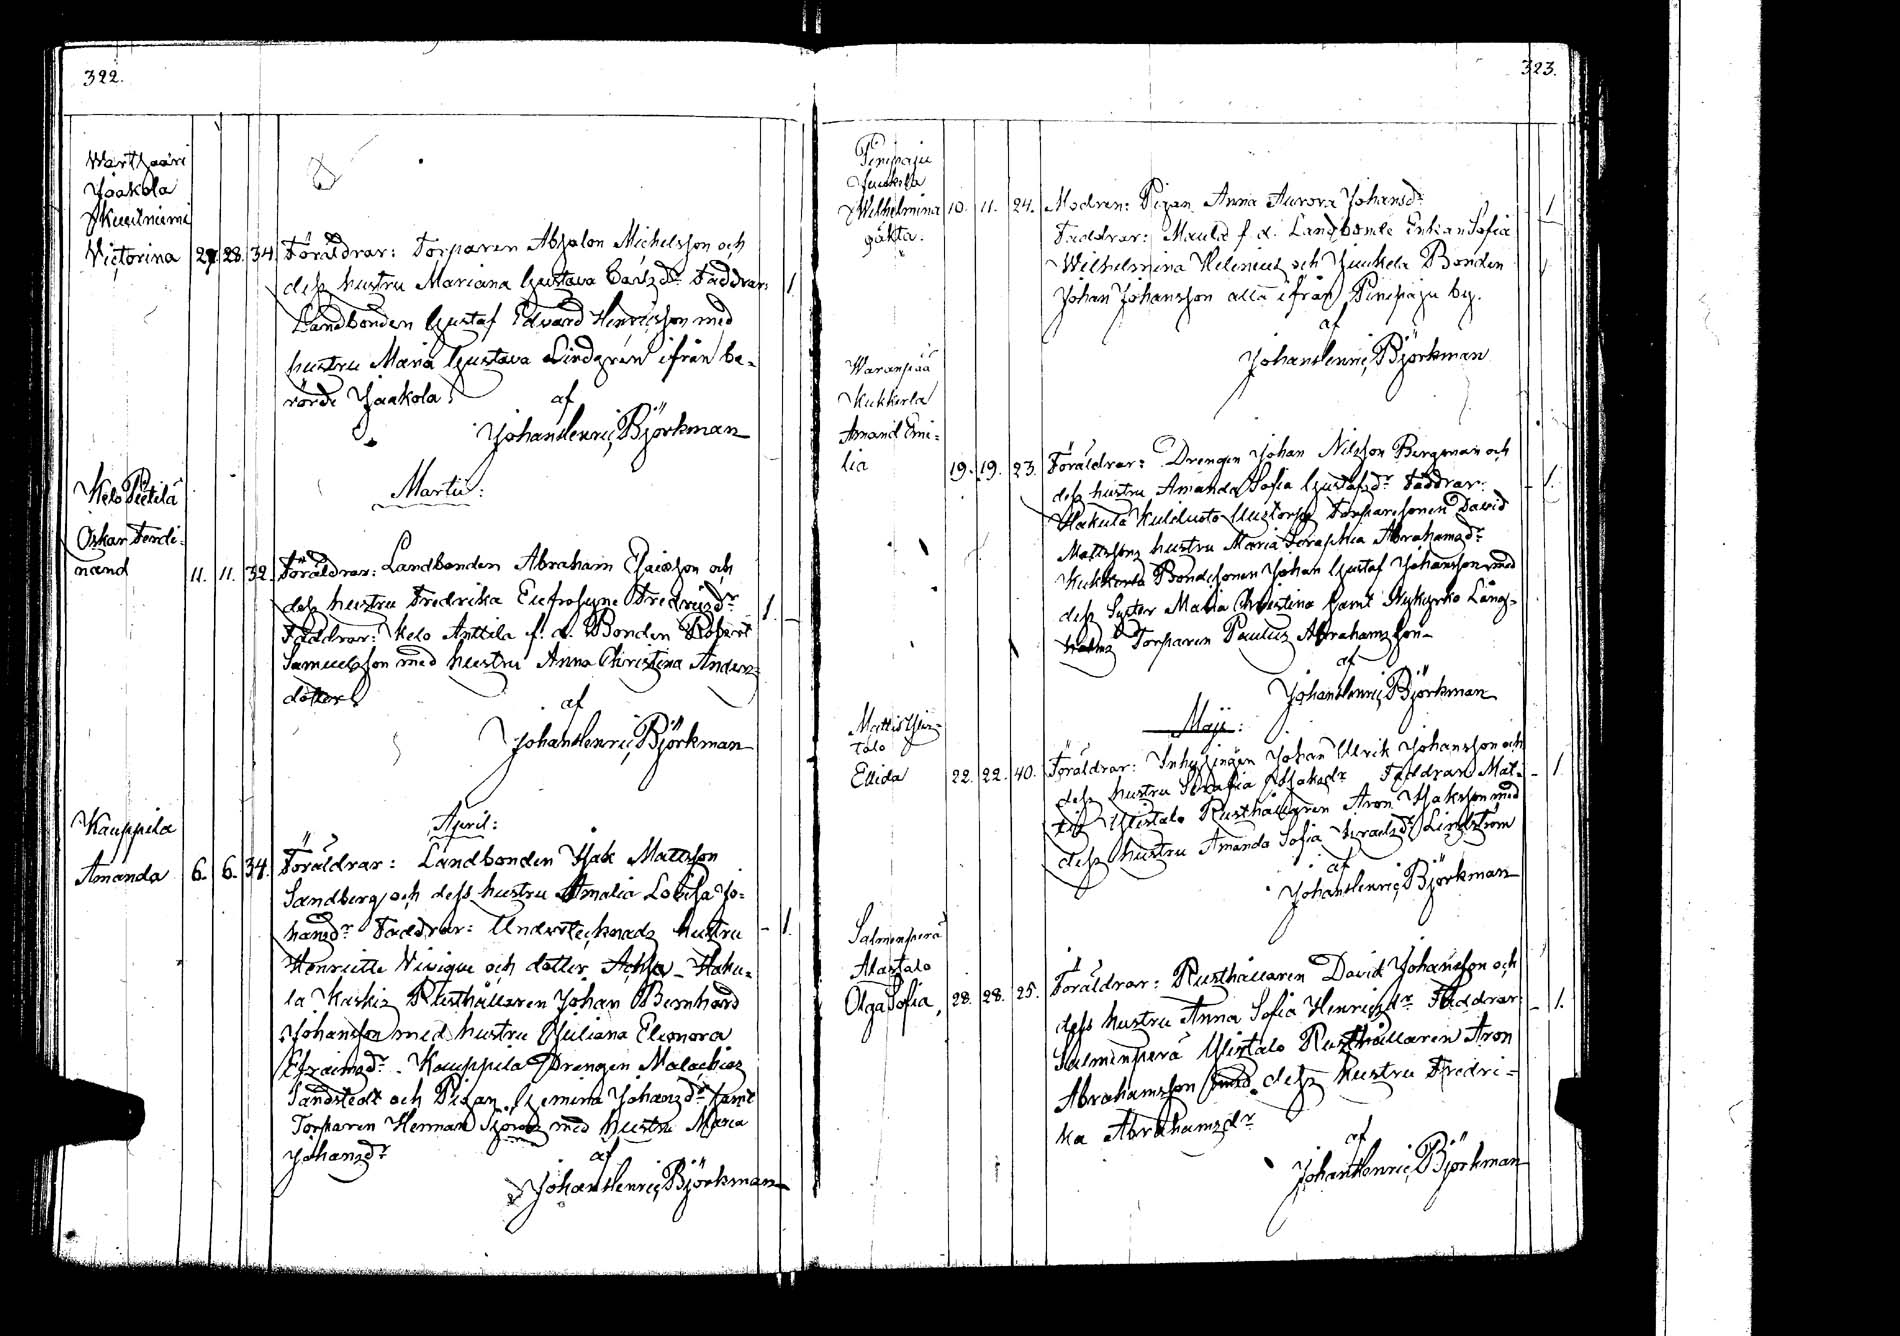 322.
Wartsaari
Jaakola
Kuutniemi
Victorina 27. 28. 34. Föräldrar: Torparen Absalon Michelsson och
dess hustru Mariana Gustava Carlsdr Faddrar: 1
Landbonden Gustaf Edvard Henricsson med
hustru Maria Gustava Lindgrén ifrån be-
rörde Jaakola. af
Johan Henric Björkman
Martii:
Kelo Pietilä
Oskar Ferdi-
nand 11. 11. 32. Föräldrar: Landbonden Abraham Esaiasson och
dess hustru Fredrika Eufrosyne Fredricsdr 1
Faddrar: Kelo Anttila f. d. Bonden Robert
Samuelsson med hustru Anna Christina Anders-
dotter. af
Johan Henric Björkman
April:
Kauppila
Amanda 6. 6. 34. Föräldrar: Landbonden Isak Mattsson
Sandberg och dess hustru Amalia Lovisa Jo-
hansdr Faddrar: Undertecknads hustru - 1.
Henriette Nivique och dotter Achsa - Haku-
la Kaskis Rusthållaren Johan Bernhard
Johansson med hustru Juliana Eleonora
Efraimsdr. Kauppila Drengen Malachias
Sandstedt och Pigan Gemina Johansdr samt
Torparen Herman Sjöroos med hustru Maria
Johansdr
af
Johan Henric Björkman
323.
Pinipaju
Juukola
Wilhelmina 10. 11. 24. Modren: Pigan Anna Aurora Johansdr 1
oäkta. Faddrar: Maula f. d. Landbonde Enkan Sofia
Wilhelmina Helenius och Juukela Bonden
Johan Johansson alla ifrån Pinipaju by.
af
Johan Henric Björkman
Waranpää
Kukkerla
Amand Emi-
lia 19. 19. 23. Föräldrar: Drengen Johan Nilsson Bergman och
dess hustru Amanda Sofia Gustafsdr Faddrar: - 1.
Hakula Torparesonen David
Mattssons hustru Maria Seraphia Abrahamsdr
Kukkerla Bondesonen Johan Gustaf Johansson med
dess Syster Maria Christina samt Nykyrko Lång-
holms Torparen Paulus Abrahamsson
af
Johan Henric Björkman
Maji:
Mattis Ylis-
talo
Ellida 22. 22. 40. Föräldrar: Inhysingen Johan Ulrik Johansson och
dess hustru Serafia Isaksdr Faddrar Mat- - 1
tis Ylistalo Rusthållaren Aron Isaksson med
dess hustru Amanda Sofia Israelsdr Lindström
af
Johan Henric Björkman
Salmenperä
Alastalo
Olga Sofia, 28. 28. 25. Föräldrar: Rusthållaren David Johansson och
dess hustru Anna Sofia Henricsdr Faddrar: - 1.
Salmenperä Ylistalo Rusthållaren Aron
Abrahamsson med dess hustru Fredri-
ka Abrahamsdr
af
Johan Henric Björkman